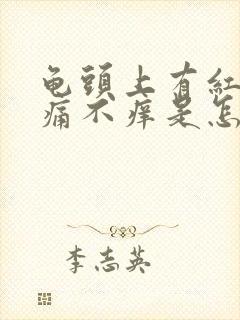 龟頭上有紅
痛不痒是怎
李志英